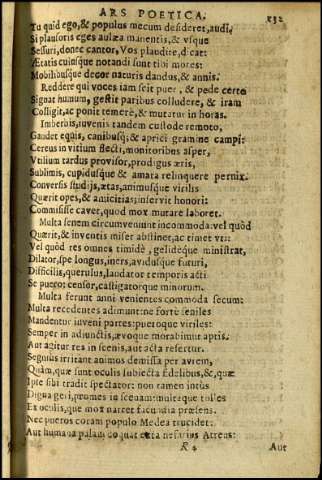 ARS POETICA. 132
Tu quid ego, & populus mecum desideret, audi.
Si plausoris eges aulæa manentis, & vsque
Sessuri, donec cantor, Vos plaudite, dicat:
Ætatis cuiusque notandi sunt tibi mores:
Mobilibusque decor naturis dandus, & annis.
Reddere qui voces iam scit puer, & pede certo
Signat humum, gestit paribus colludere, & iram
Colligit, ac ponit temerè, & mutatur in horas.
Imberbis, iuuenis tandem custode remoto,
Gaudet equis, canibusq; & aprici gramine campi:
Cereus in vitium flecti, monitoribus asper,
Vtilium tardus prouisor, prodigus æris,
Sublimis, cupidusque & amata relinquere pernix.
Conuersis studijs, ætas, animusque virilis
Quærit opes, & amicitias: inseruit honori:
Commisisse cauet, quod mox mutare laboret.
Multa senem circumueniunt incommoda: vel quòd
Quærit, & inuentis miser abstinet, ac timet vti:
Vel quòd res omnes timidè, gelidéque ministrat,
Dilator, spe longus, iners, auidusque futuri,
Difficilis, querulus, laudator temporis acti
Se puero: censor, castigatorque minorum.
Multa ferunt anni venientes commoda secum:
Multa recedentes adimunt: ne fortè seniles
Mandentur iuueni partes: pueroque viriles:
Semper in adiunctis, æuoque morabimur aptis.
Aut agitur res in scenis, aut acta refertur.
Segnius irritant animos demissa per aurem,
Quàm, quæ sunt oculis subiecta fidelibus, & quæ
Ipse sibi tradit spectator: non tamen intùs
Digna geri, promes in scenam: multaque tolles
Ex oculis, quæ mox narret facundia præsens.
Nec pueros coram populo Medea trucidet:
Aut humana palam coquat exta nefarius Atreus:
R 4 Aut